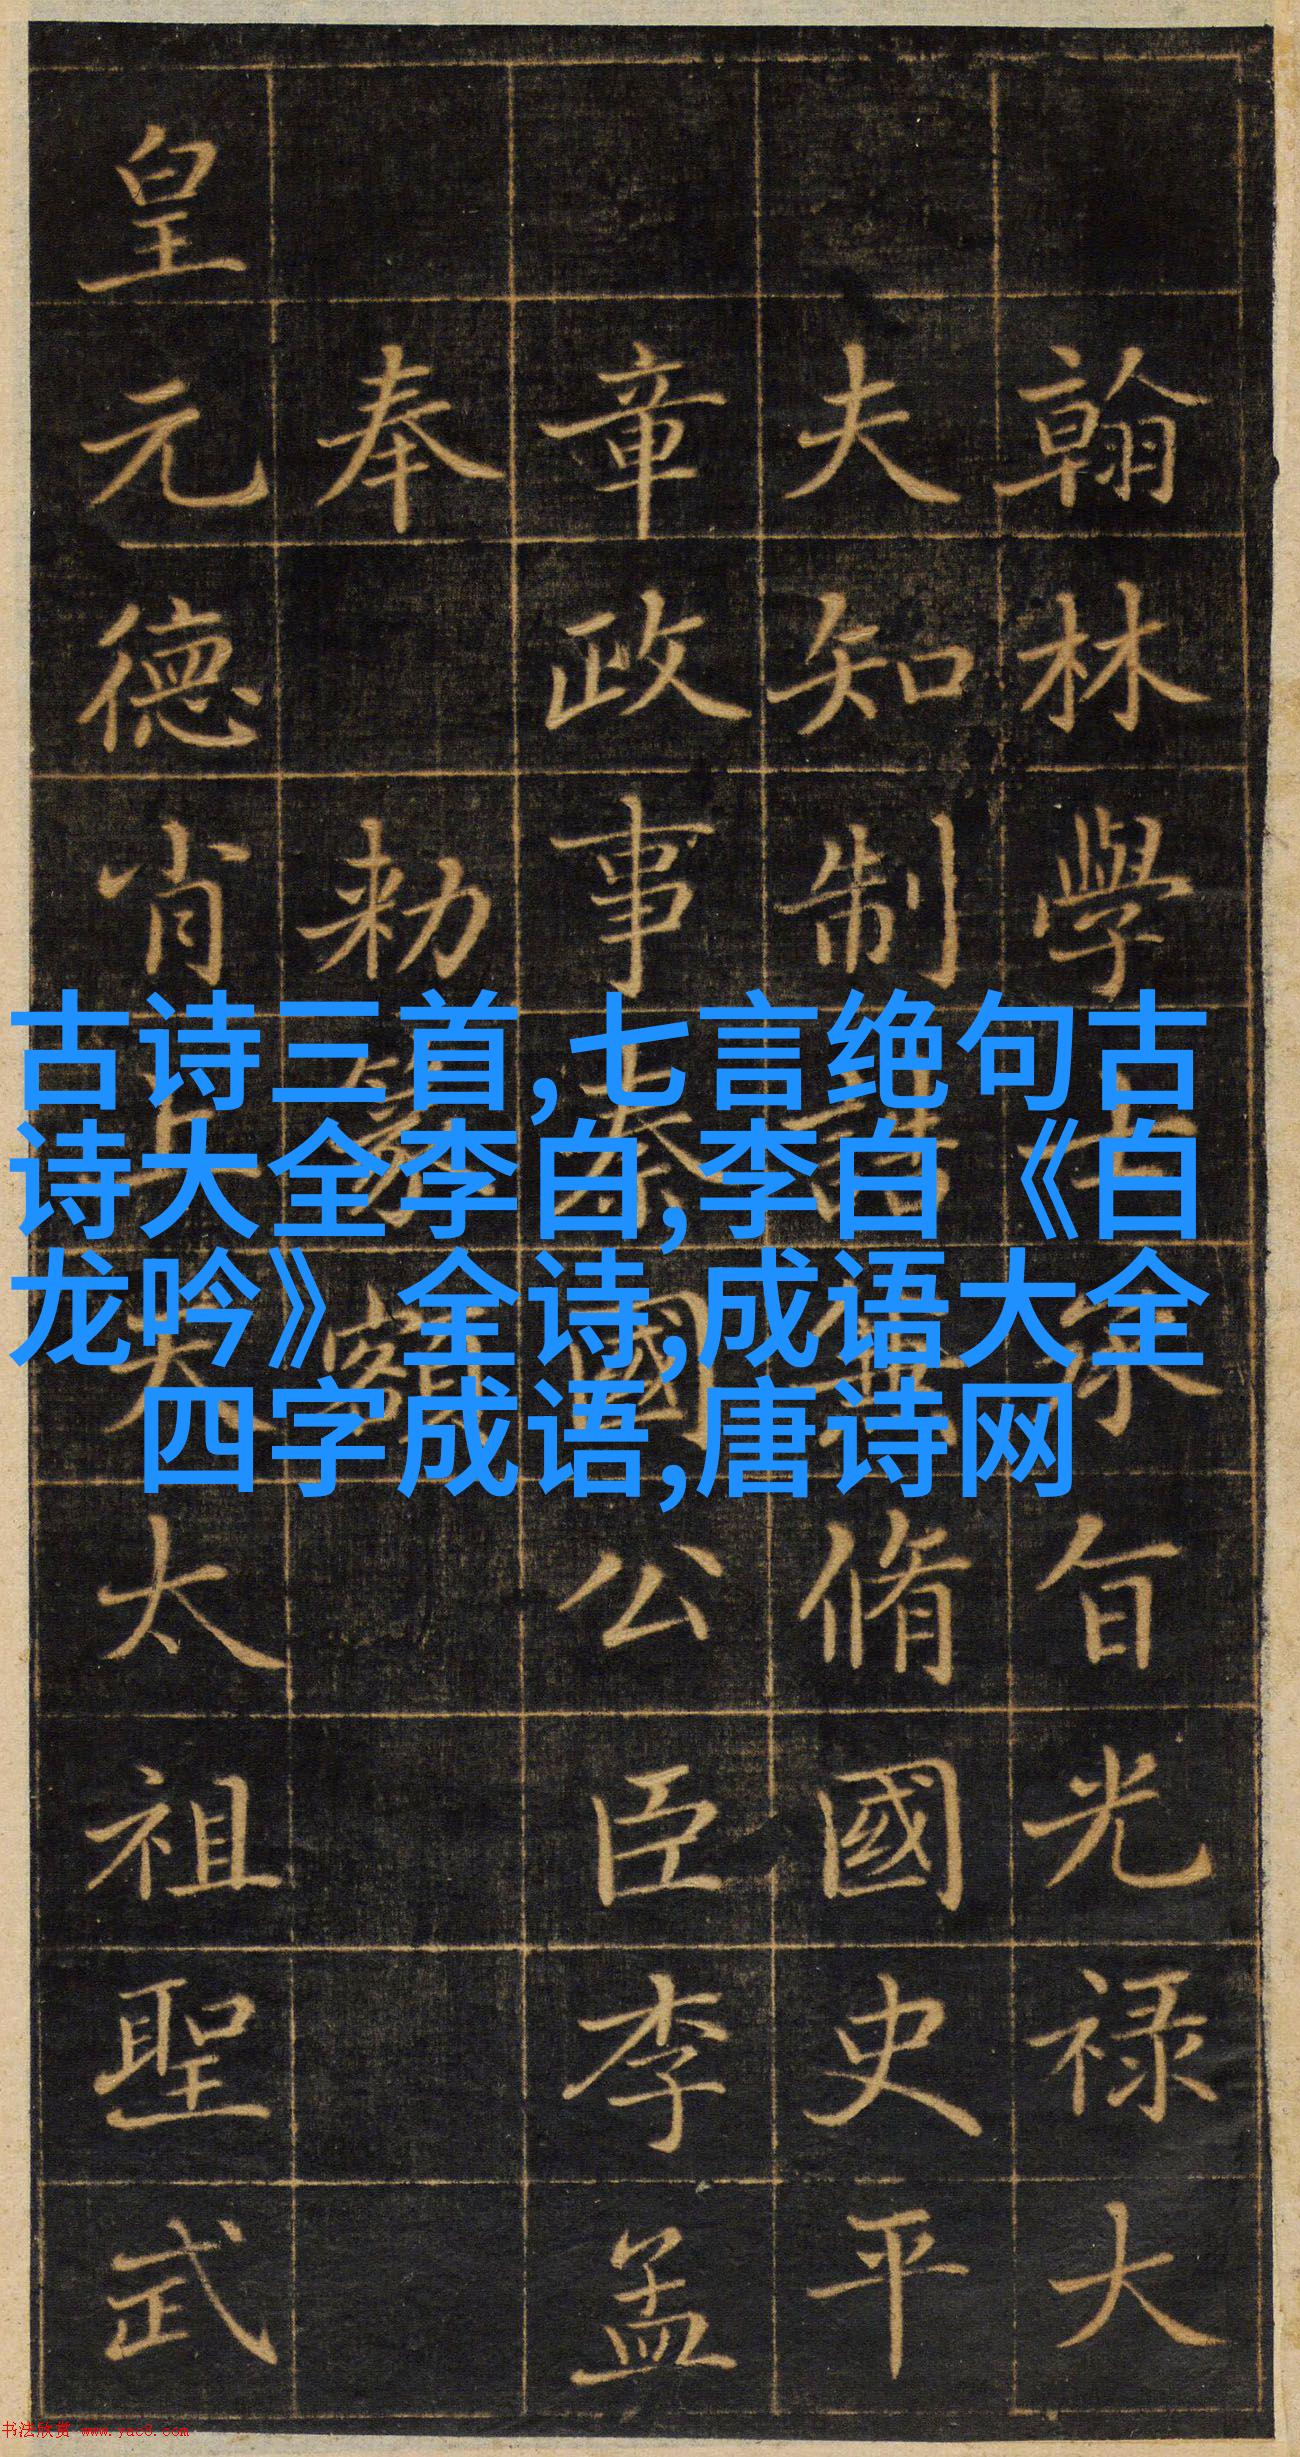 古诗三首,七言绝句古
诗大全李白,李白《白
龙吟》全诗,成语大全
四字成语,唐诗网
翰林學士承旨光禄大
夫知制誥兼脩國史平
章政事秦國公臣李孟
奉勑篆額
皇元德肖上天太祖聖武
书法欣赏 www.yac8.com